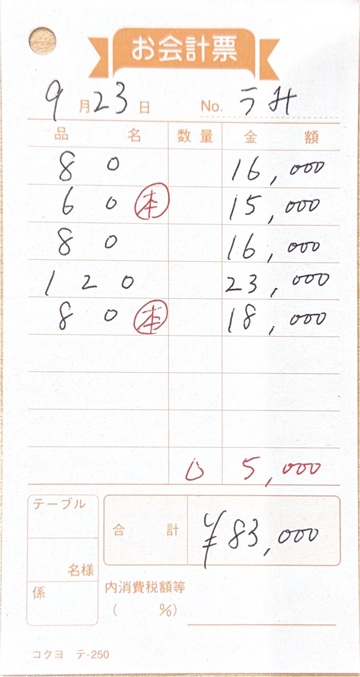 お会計票
9月23日 No. ラム
品名 数量 金額
80 16,000
60 本 15,000
80 16,000
120 23,000
80 本 18,000
5,000
テーブル
名様
係
合計 ¥83,000
内消費税額等
( %)
コクヨ テ-250